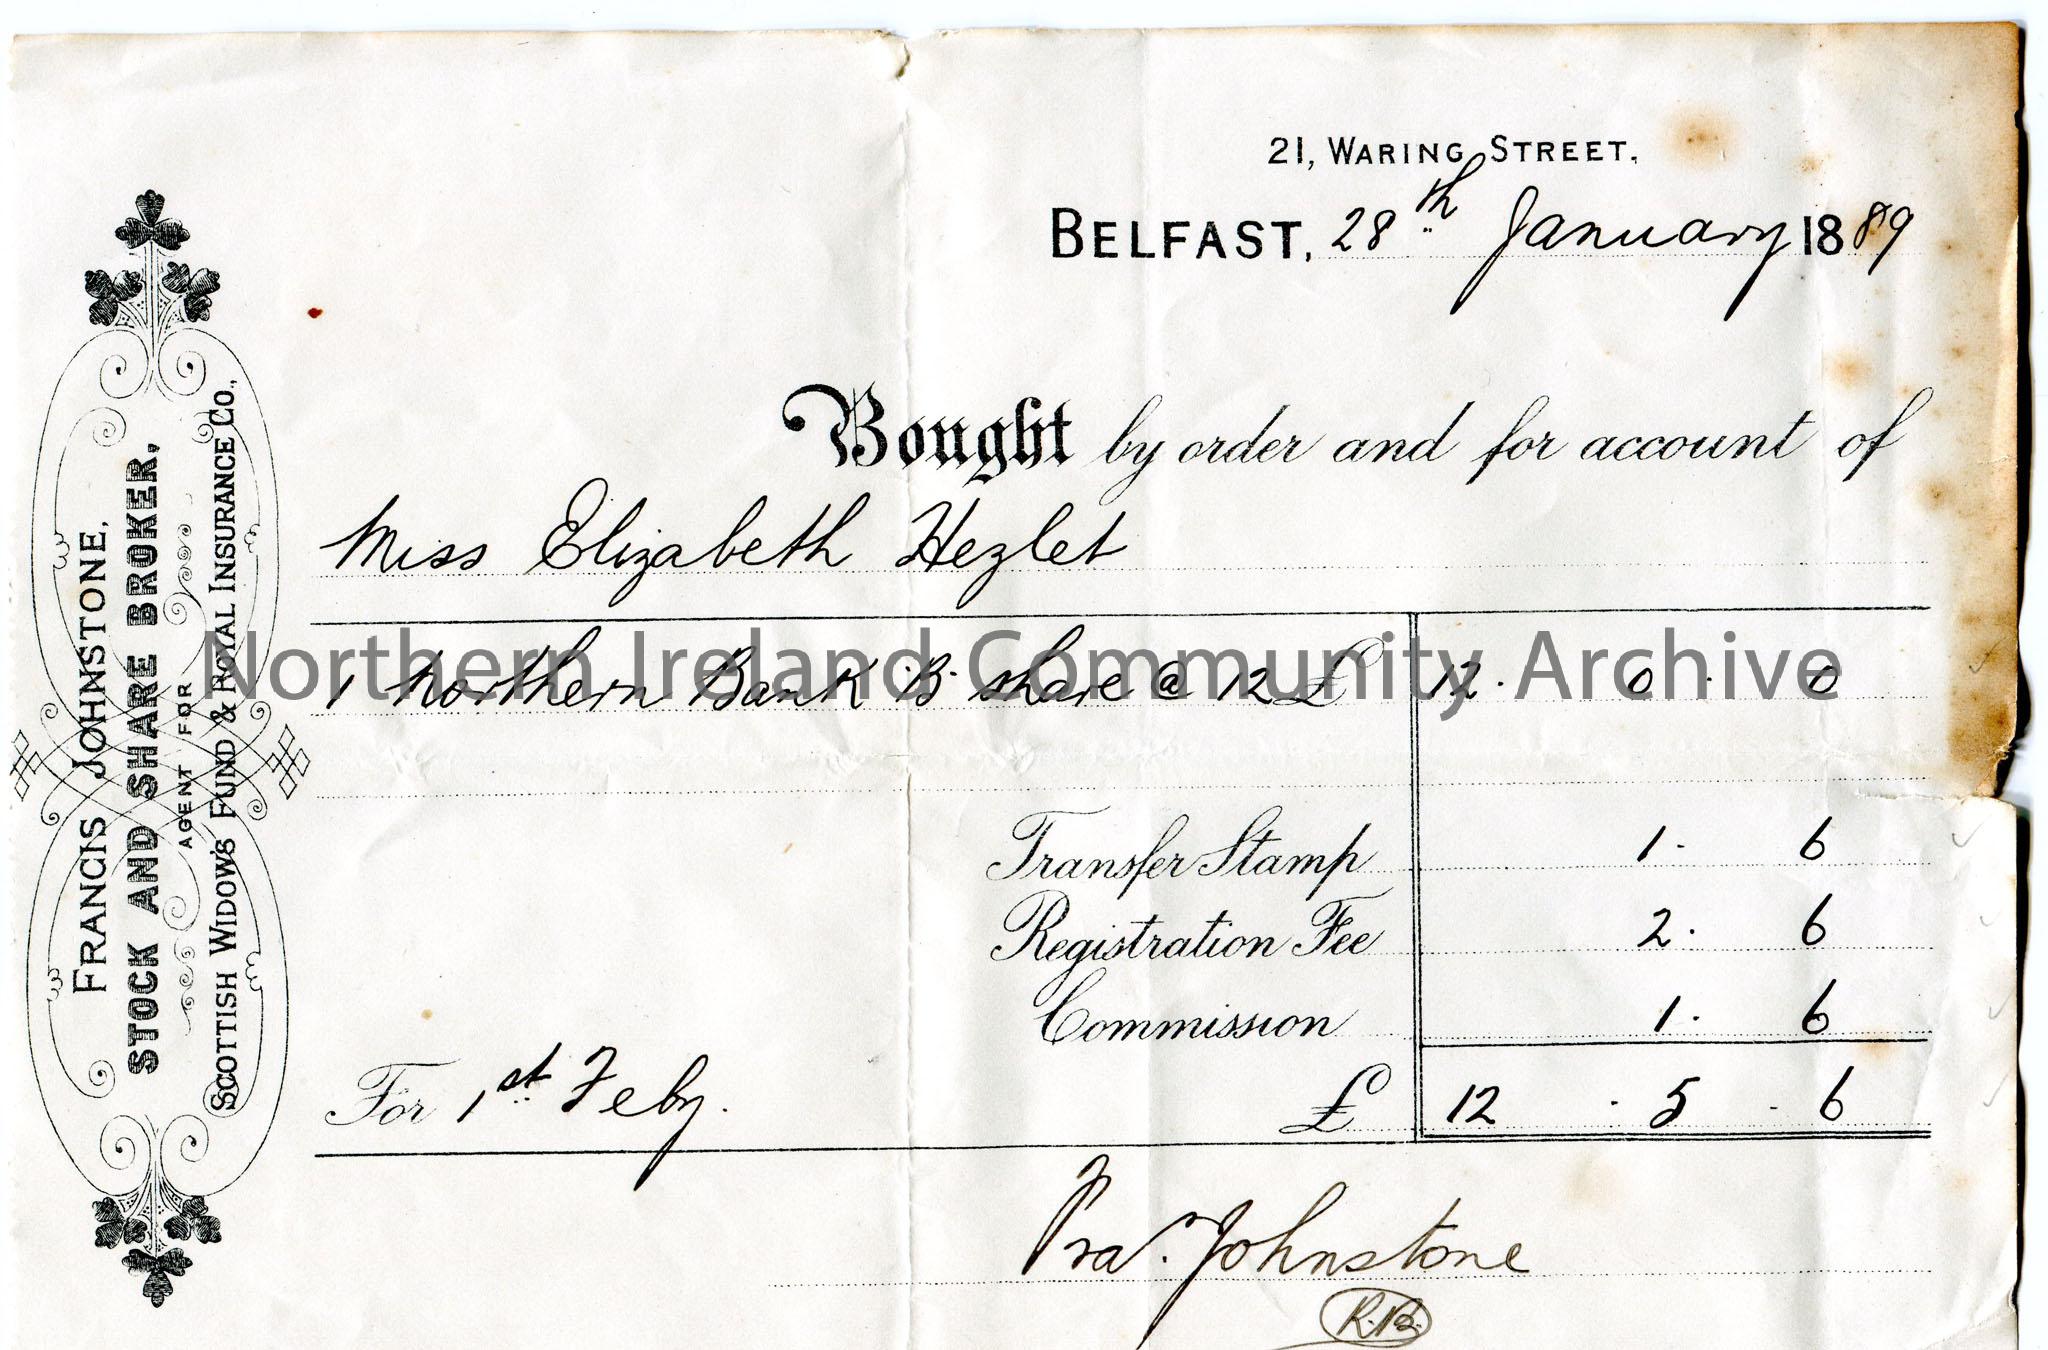 21, WARING STREET.
BELFAST, 28th January 1889
Bought by order and for account of
Miss Elizabeth Hezlet
1 Northern Bank B. share @ 12 £ 12. 0. 0
Transfer Stamp 1. 6
Registration Fee 2. 6
Commission 1. 6
For 1st Feby. £ 12 . 5 . 6
Fra. Johnstone
R.B.
FRANCIS JOHNSTONE,
STOCK AND SHARE BROKER,
AGENT FOR
SCOTTISH WIDOW'S FUND & ROYAL INSURANCE CO.,
Northern Ireland Community Archive